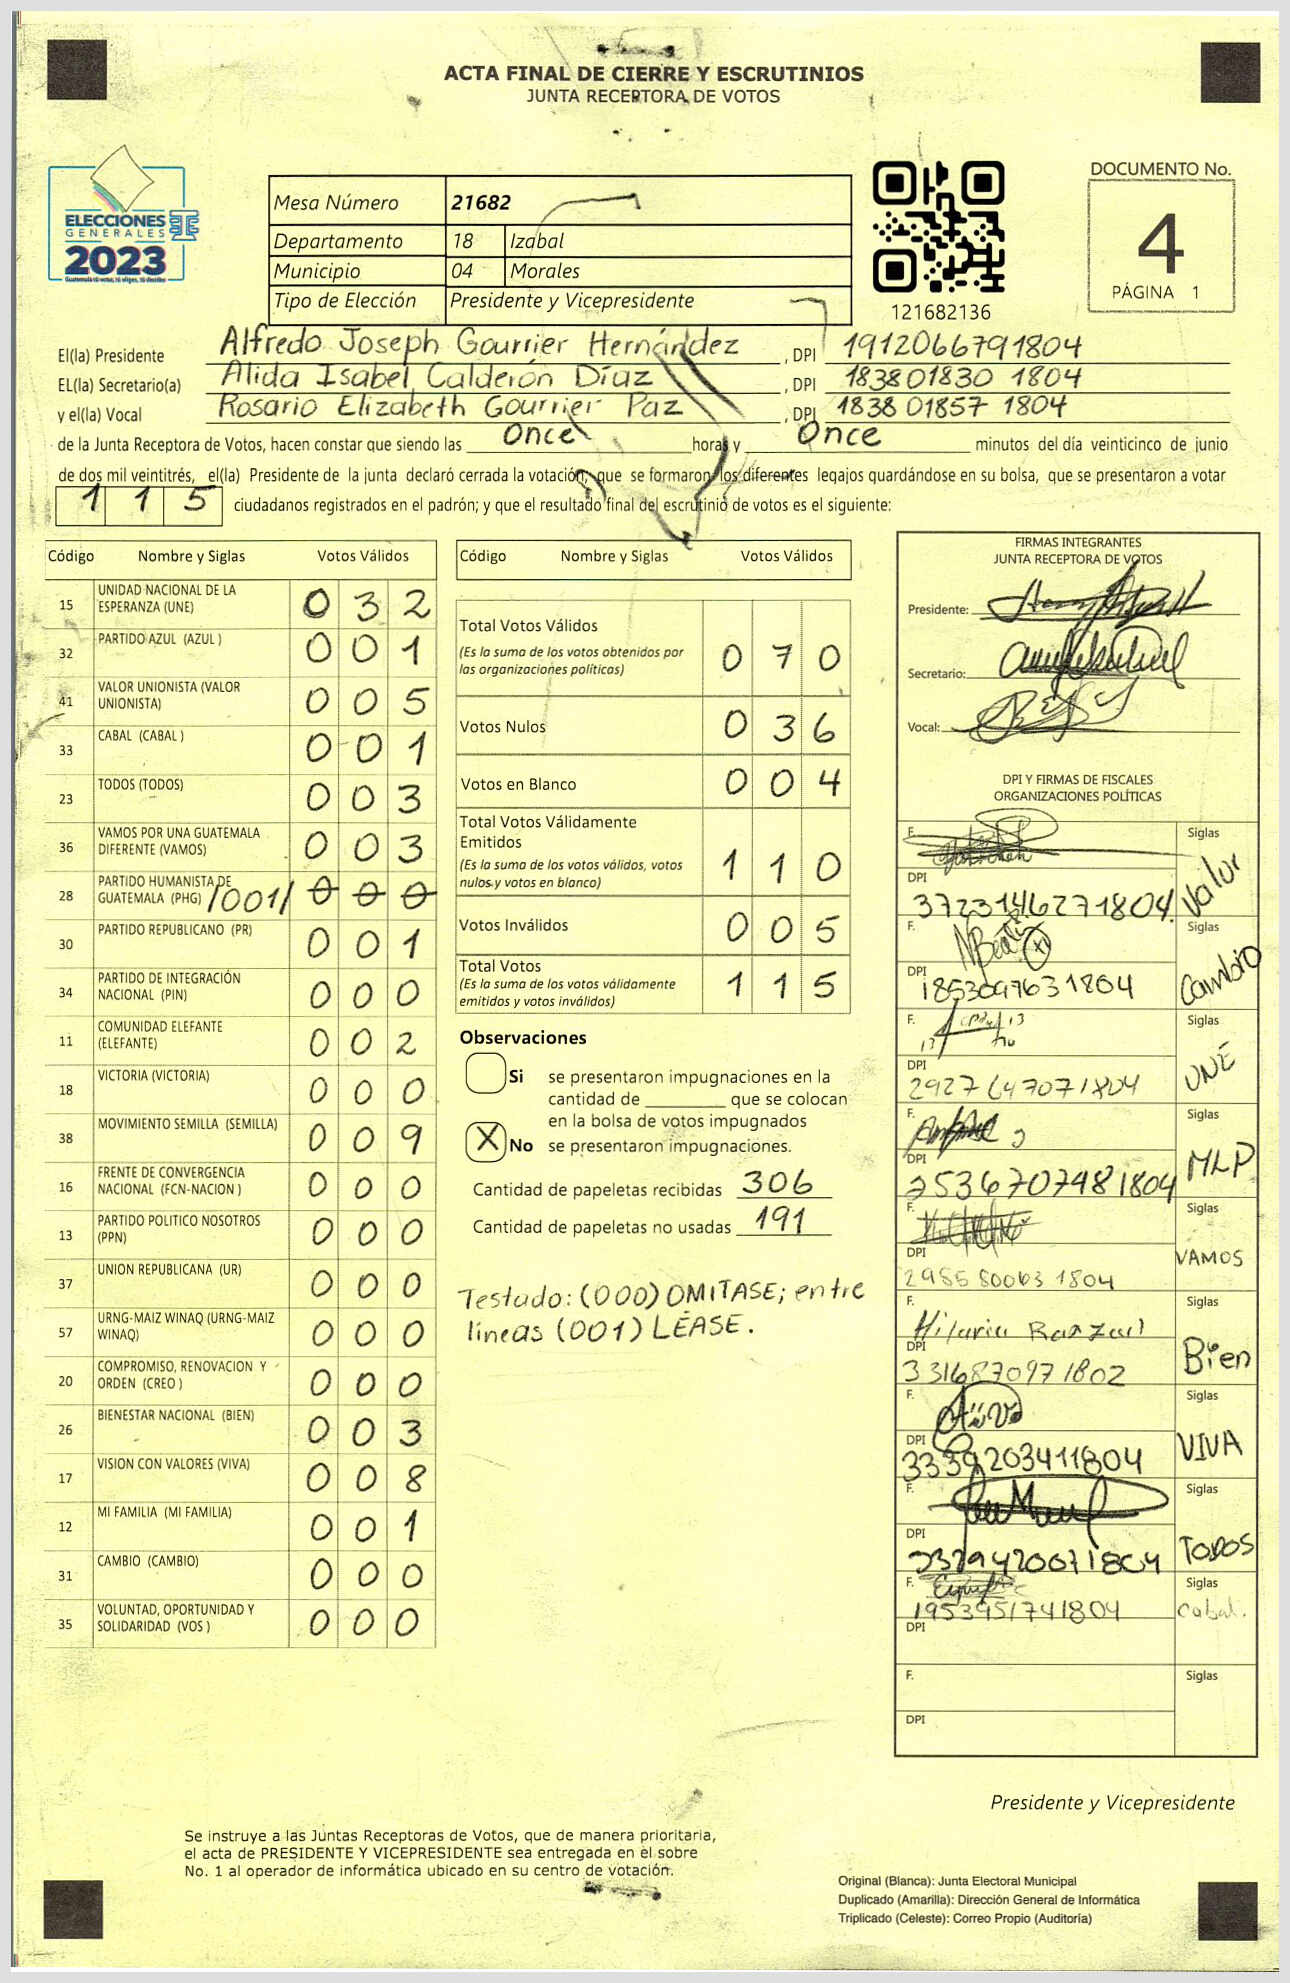 ACTA FINAL DE CIERRE Y ESCRUTINIOS
JUNTA RECEPTORA DE VOTOS
ELECCIONES
GENERALES
2023
Mesa Número 21682
Departamento 18 Izabal
Municipio 04 Morales
Tipo de Elección Presidente y Vicepresidente
121682136
DOCUMENTO No.
4
PÁGINA 1
El(la) Presidente Alfredo Joseph Gourrier Hernández , DPI 1912066791804
EL(la) Secretario(a) Alida Isabel Calderón Díaz , DPI 183801830 1804
y el(la) Vocal Rosario Elizabeth Gourrier Paz , DPI 1838 01857 1804
de la Junta Receptora de Votos, hacen constar que siendo las Once horas y Once minutos del día veinticinco de junio
de dos mil veintitrés, el(la) Presidente de la junta declaró cerrada la votación; que se formaron los diferentes legajos quardándose en su bolsa, que se presentaron a votar
115 ciudadanos registrados en el padrón; y que el resultado final del escrutinio de votos es el siguiente:
Código Nombre y Siglas Votos Válidos
15 UNIDAD NACIONAL DE LA ESPERANZA (UNE) 0 3 2
32 PARTIDO AZUL (AZUL ) 0 0 1
41 VALOR UNIONISTA (VALOR UNIONISTA) 0 0 5
33 CABAL (CABAL ) 0 0 1
23 TODOS (TODOS) 0 0 3
36 VAMOS POR UNA GUATEMALA DIFERENTE (VAMOS) 0 0 3
28 PARTIDO HUMANISTA DE GUATEMALA (PHG) /001/ 0 0 0
30 PARTIDO REPUBLICANO (PR) 0 0 1
34 PARTIDO DE INTEGRACIÓN NACIONAL (PIN) 0 0 0
11 COMUNIDAD ELEFANTE (ELEFANTE) 0 0 2
18 VICTORIA (VICTORIA) 0 0 0
38 MOVIMIENTO SEMILLA (SEMILLA) 0 0 9
16 FRENTE DE CONVERGENCIA NACIONAL (FCN-NACION ) 0 0 0
13 PARTIDO POLITICO NOSOTROS (PPN) 0 0 0
37 UNION REPUBLICANA (UR) 0 0 0
57 URNG-MAIZ WINAQ (URNG-MAIZ WINAQ) 0 0 0
20 COMPROMISO, RENOVACION Y ORDEN (CREO ) 0 0 0
26 BIENESTAR NACIONAL (BIEN) 0 0 3
17 VISION CON VALORES (VIVA) 0 0 8
12 MI FAMILIA (MI FAMILIA) 0 0 1
31 CAMBIO (CAMBIO) 0 0 0
35 VOLUNTAD, OPORTUNIDAD Y SOLIDARIDAD (VOS ) 0 0 0
Código Nombre y Siglas Votos Válidos
Total Votos Válidos 0 7 0
(Es la suma de los votos obtenidos por
las organizaciones políticas)
Votos Nulos 0 3 6
Votos en Blanco 0 0 4
Total Votos Válidamente
Emitidos 1 1 0
(Es la suma de los votos válidos, votos
nulos y votos en blanco)
Votos Inválidos 0 0 5
Total Votos 1 1 5
(Es la suma de los votos válidamente
emitidos y votos inválidos)
Observaciones
Si se presentaron impugnaciones en la
cantidad de ________ que se colocan
en la bolsa de votos impugnados
X No se presentaron impugnaciones.
Cantidad de papeletas recibidas 306
Cantidad de papeletas no usadas 191
Testado: (000) OMITASE; entre
lineas (001) LEASE.
FIRMAS INTEGRANTES
JUNTA RECEPTORA DE VOTOS
Presidente:
Secretario:
Vocal:
DPI Y FIRMAS DE FISCALES
ORGANIZACIONES POLÍTICAS
F. Siglas Valor
DPI 3723146271804
F. Siglas Cambio
DPI 1853097631804
F. Siglas UNE
DPI 2927647071804
F. Siglas MLP
DPI 2536707481804
F. Siglas VAMOS
DPI 2985800631804
F. Hilaria Siglas Bien
DPI 3316870971802
F. Siglas VIVA
DPI 3339203411804
F. Siglas TODOS
DPI 3329420071804
F. Siglas Cabal.
1953951741804
DPI
F. Siglas
DPI
Presidente y Vicepresidente
Se instruye a las Juntas Receptoras de Votos, que de manera prioritaria,
el acta de PRESIDENTE Y VICEPRESIDENTE sea entregada en el sobre
No. 1 al operador de informática ubicado en su centro de votación.
Original (Blanca): Junta Electoral Municipal
Duplicado (Amarilla): Dirección General de Informática
Triplicado (Celeste): Correo Propio (Auditoría)